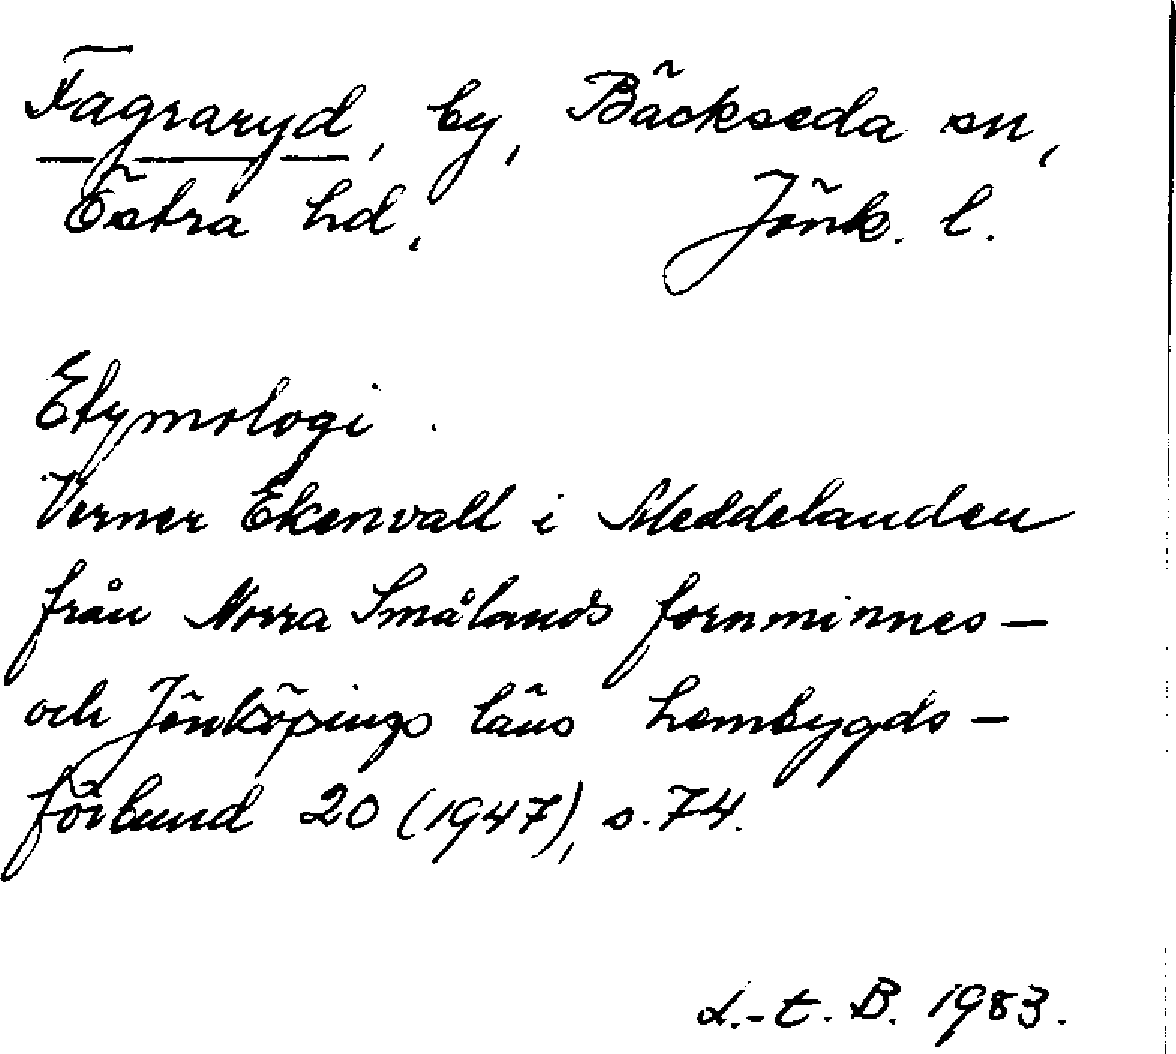 Fagraryd, by, Bäckseda sn,
Östra hd, Jönk. l.
Etymologi.
Verner Ekenvall i Meddelanden
från Norra Smålands fornminnes-
och Jönköpings läns hembygds-
förbund 20 (1947), s. 74.
L.-t. B. 1983.